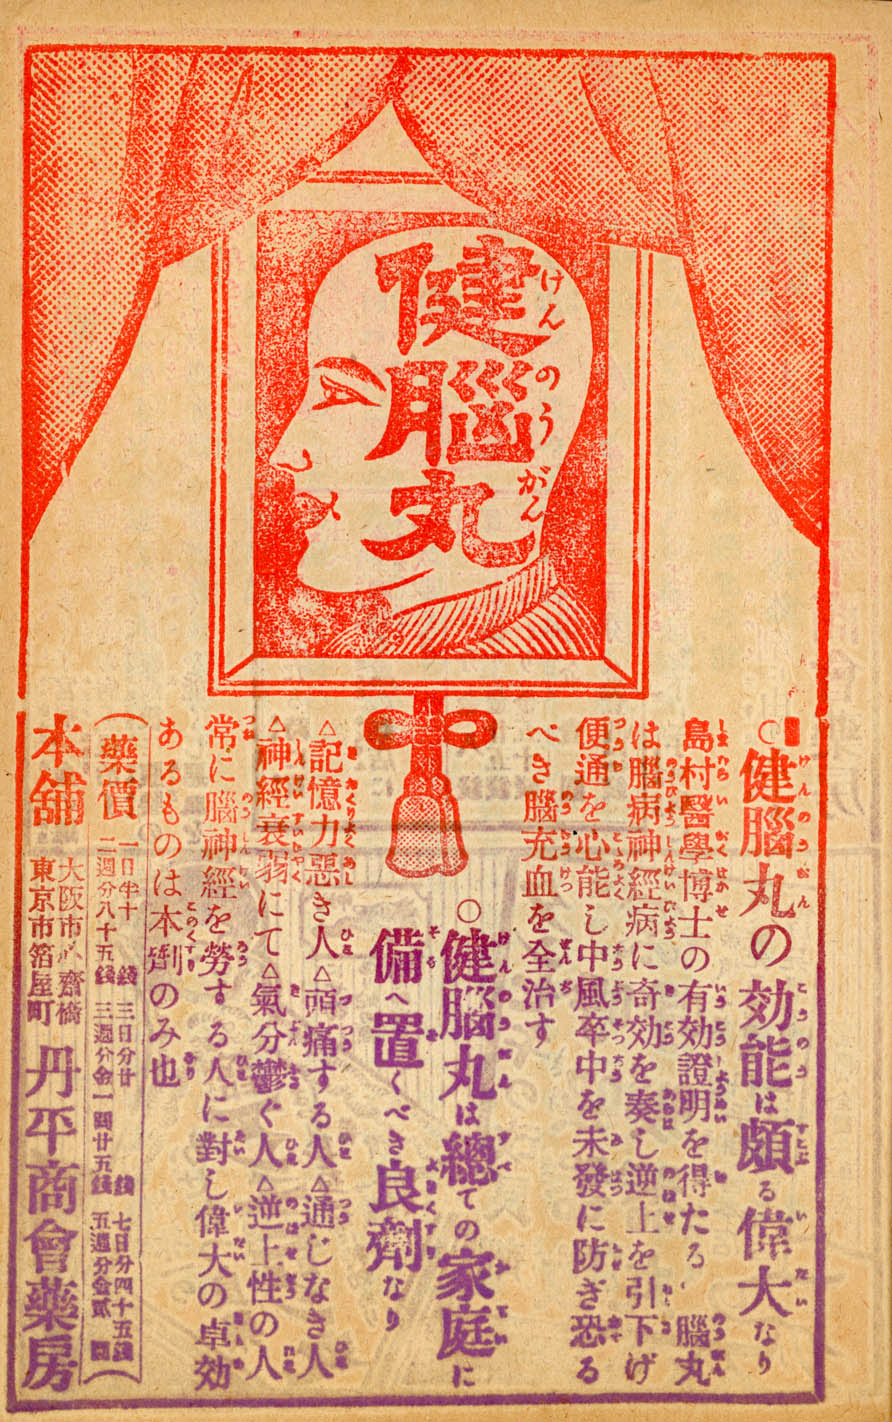 健腦丸
けんのうがん
○健腦丸の効能は頗る偉大なり
島村醫學博士の有効證明を得たる腦丸
は腦病神經病に奇効を奏し逆上を引下げ
便通を心能し中風卒中を未發に防ぎ恐る
べき腦充血を全治す
○健腦丸は總ての家庭に
備へ置くべき良劑なり
△記憶力惡き人△頭痛する人△通じなき人
△神經衰弱にて△氣分鬱ぐ人△逆上性の人
常に腦神經を勞する人に對し偉大の卓効
あるものは本劑のみ也
(藥價
一日半十錢 三日分廿錢 七日分四十五錢
二週分八十五錢 三週分金一圓廿五錢 五週分金貳圓)
本舗
大阪市心齋橋
東京市箔屋町
丹平商會藥房